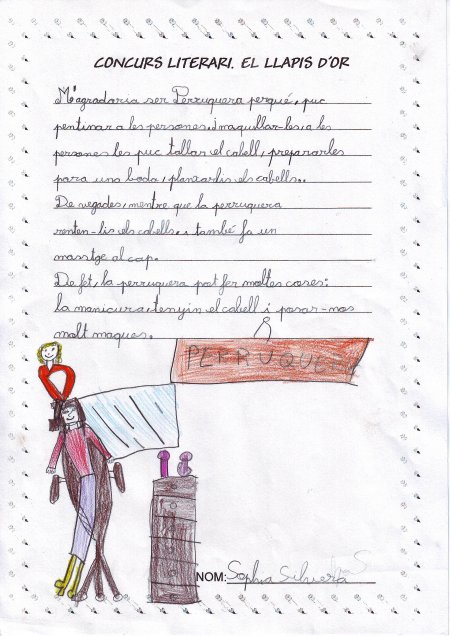 CONCURS LITERARI. EL LLAPIS D'OR
M'agradaria ser Perruquera perquè, puc
pentinar a les persones, i maquillar-les, a les
persones les puc tallar el cabell, prepararles
para una boda, planxarlis els cabells..
De vegades, mentre que la perruquera
renten-lis els cabells, i també fa un
massatge al cap.
De fet, la perruquera pot fer moltes coses:
la manicura, tenyin el cabell i posar-nos
molt maques.
PERRUQUERIA
NOM: Sophia Silviera